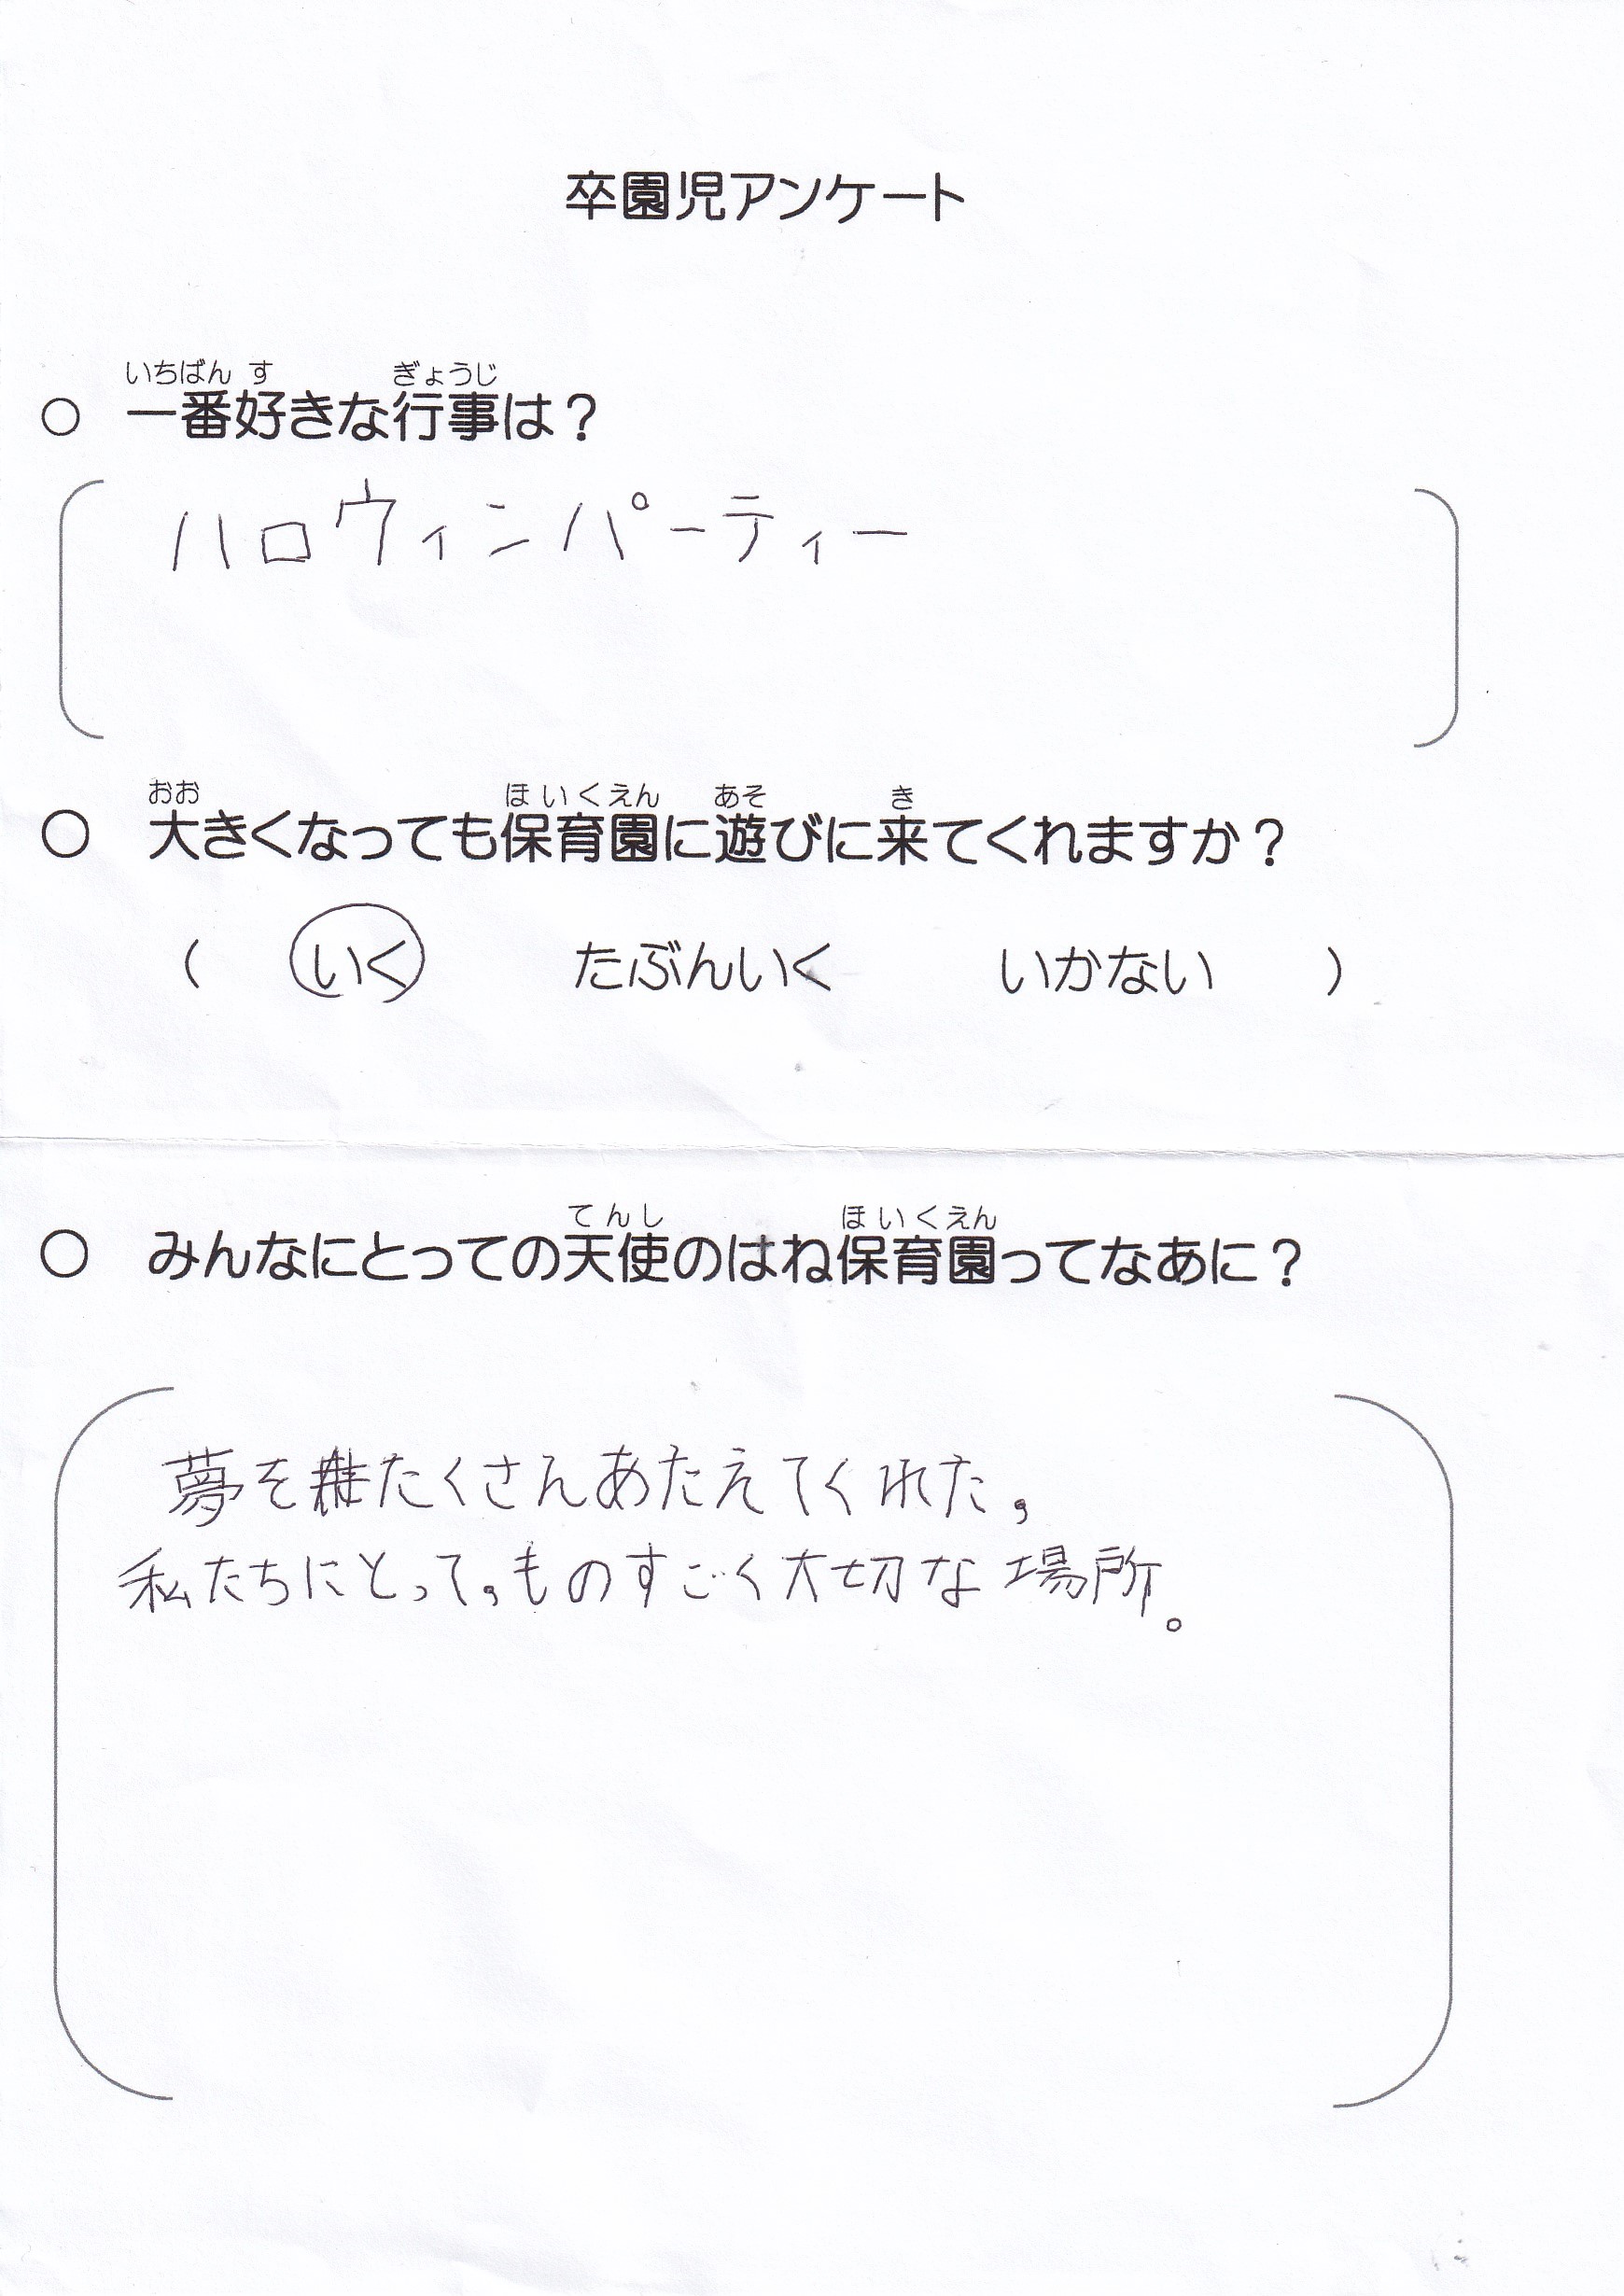 卒園児アンケート
いちばん す ぎょうじ
○ 一番好きな行事は？
ハロウィンパーティー
おお ほいくえん あそ き
○ 大きくなっても保育園に遊びに来てくれますか？
( いく たぶんいく いかない )
てんし ほいくえん
○ みんなにとっての天使のはね保育園ってなあに？
夢をたくさんあたえてくれた，
私たちにとって，ものすごく大切な場所。